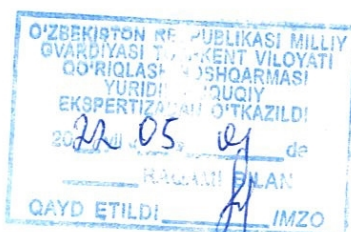 O'ZBEKISTON RESPUBLIKASI MILLIY
GVARDIYASI TOSHKENT VILOYATI
QO'RIQLASH BOSHQARMASI
YURIDIK HUQUQIY
EKSPERTIZADAN O'TKAZILDI
20 22 05 de
RAQAMI BILAN
QAYD ETILDI IMZO